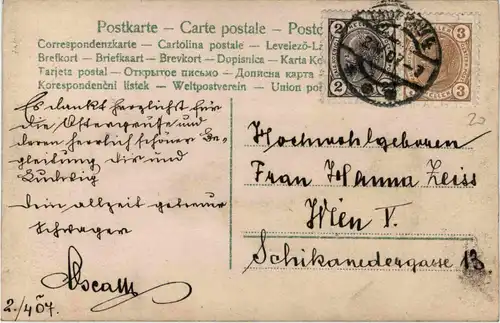 Postkarte — Carte postale — Postc
Correspondenzkarte — Cartolina postale — Levelező-L
Brefkort — Briefkaart — Brevkort — Dopisnica — Karta Ko
Tarjeta postal — Открытое письмо — Дописна карта
Korespondenční lístek — Weltpostverein — Union po
2 2
3 3
2 2
3 3
20
Es dankt herzlichst für
die Ostergrüsse und
deren herrlich schöner Be-
gleitung dir und
Ludwig
dein allzeit getreuer
Schwager
Oscar
2./4 07.
Hochwohlgeboren
Frau Hanna Zeiss
Wien V.
Schikanedergasse 13.